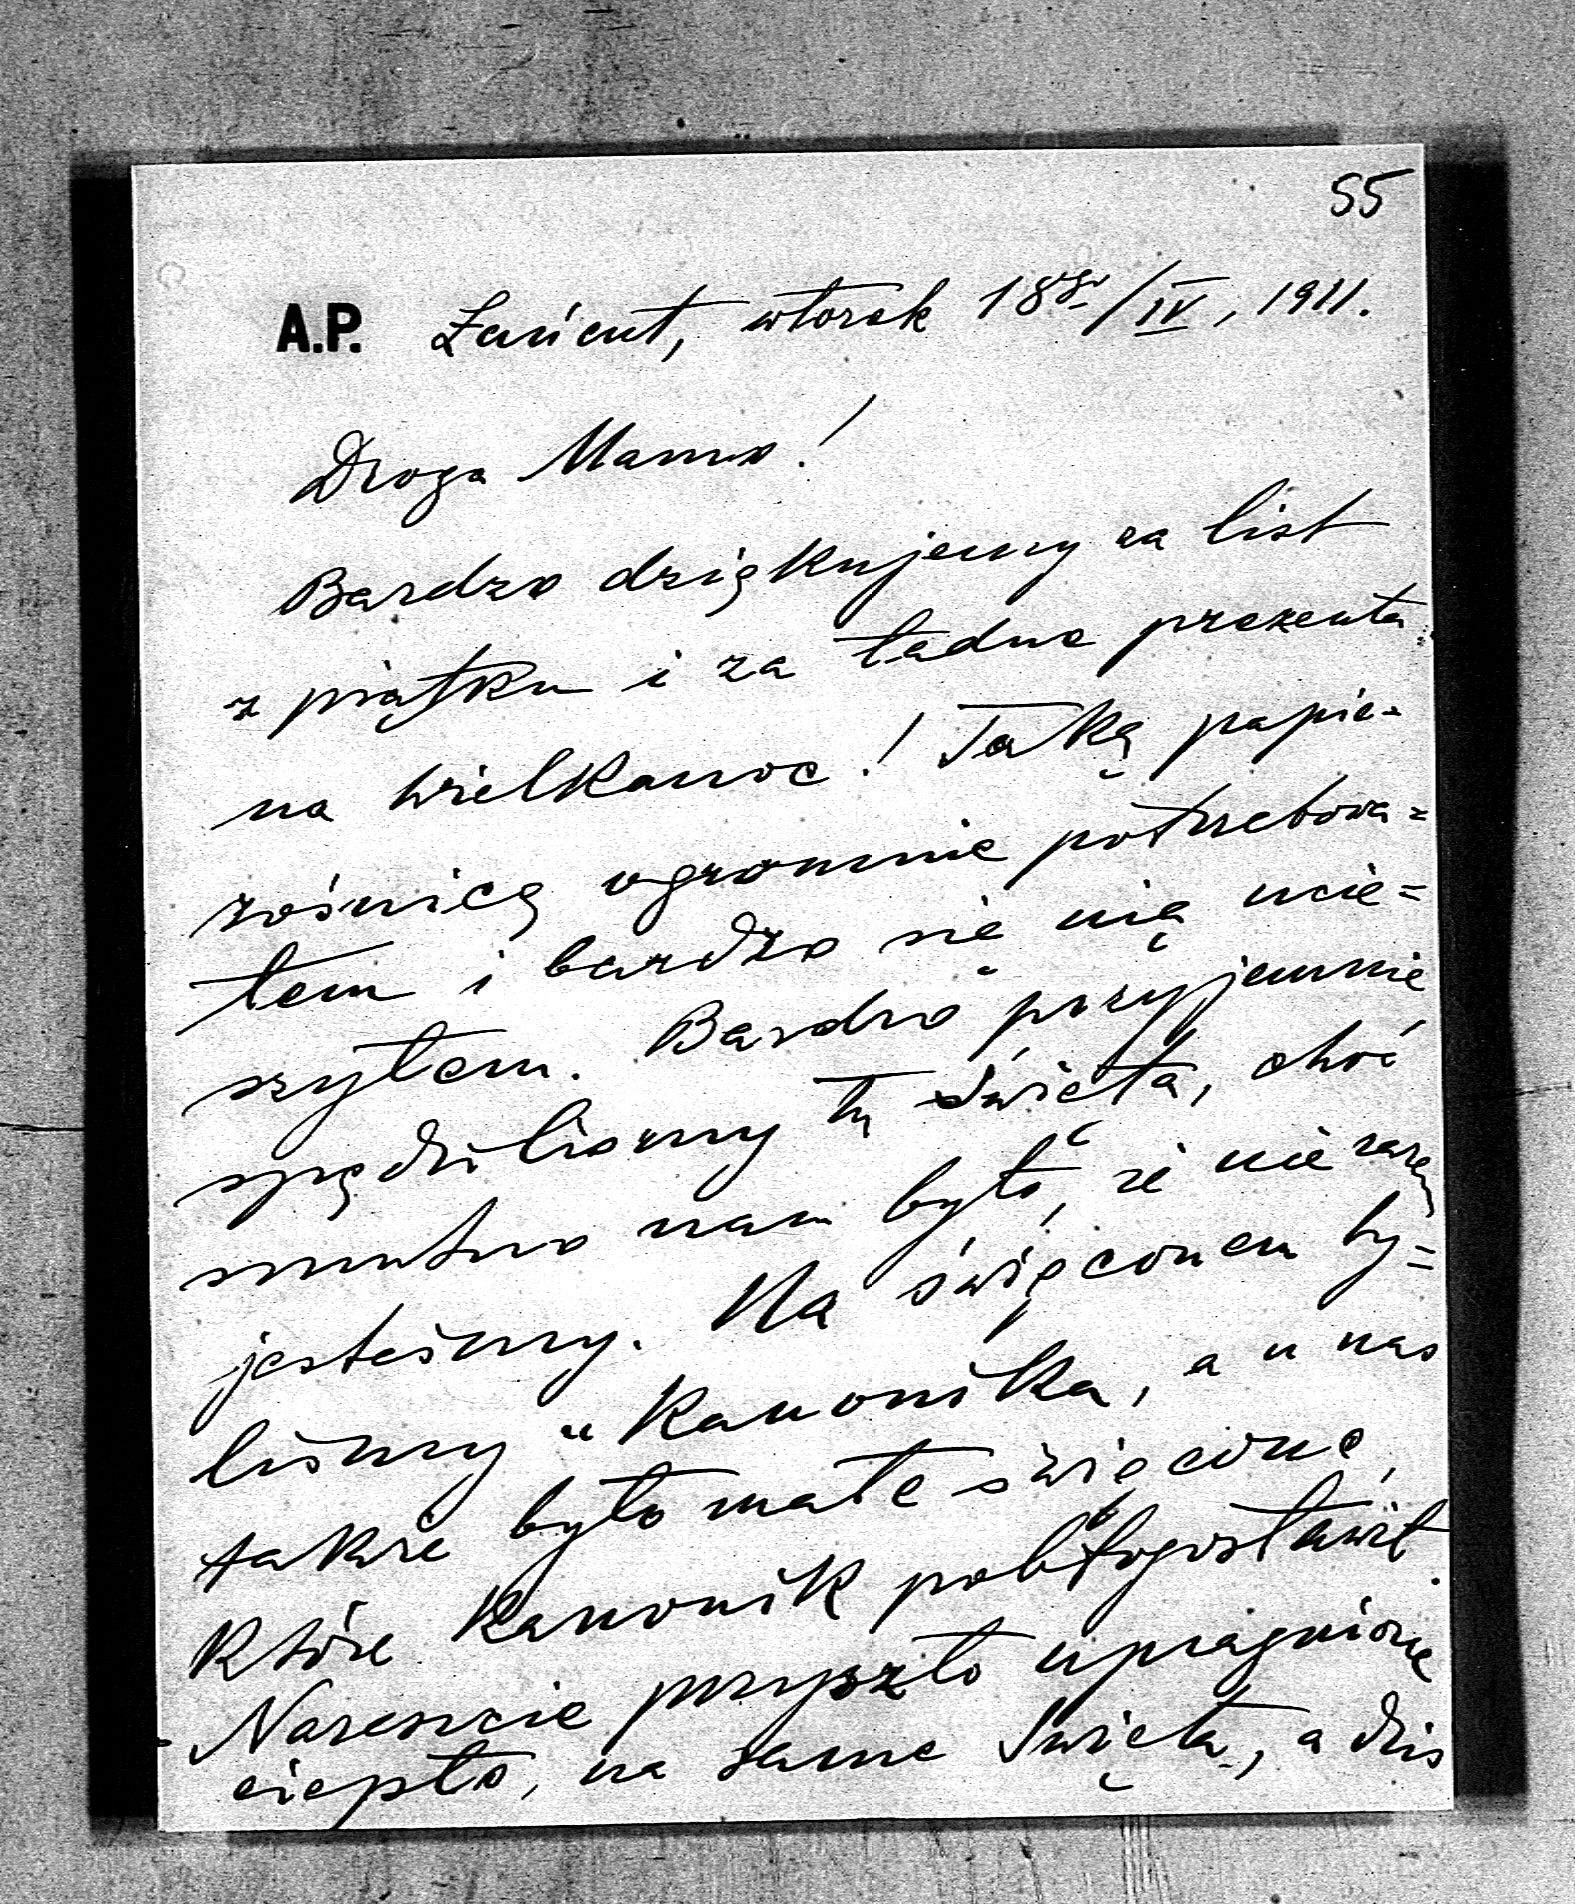 55
A.P. Łańcut, wtorek 18go/IV, 1911.
Droga Mamo!
Bardzo dziękujemy za list
z piątku i za ładne prezenta
na Wielkanoc! Taką papie=
rośnicę ogromnie potrzebowa=
łem i bardzo się nią ucie=
szyłem. Bardzo przyjemnie
spędziliśmy tu Święta, choć
smutno nam było, że nie razem
jesteśmy. Na święconem by=
liśmy u Kanonika, a u nas
także było małe święcone,
które Kanonik pobłogosławił.
Nareszcie przyszło upragnione
ciepło, na same Święta, a dziś